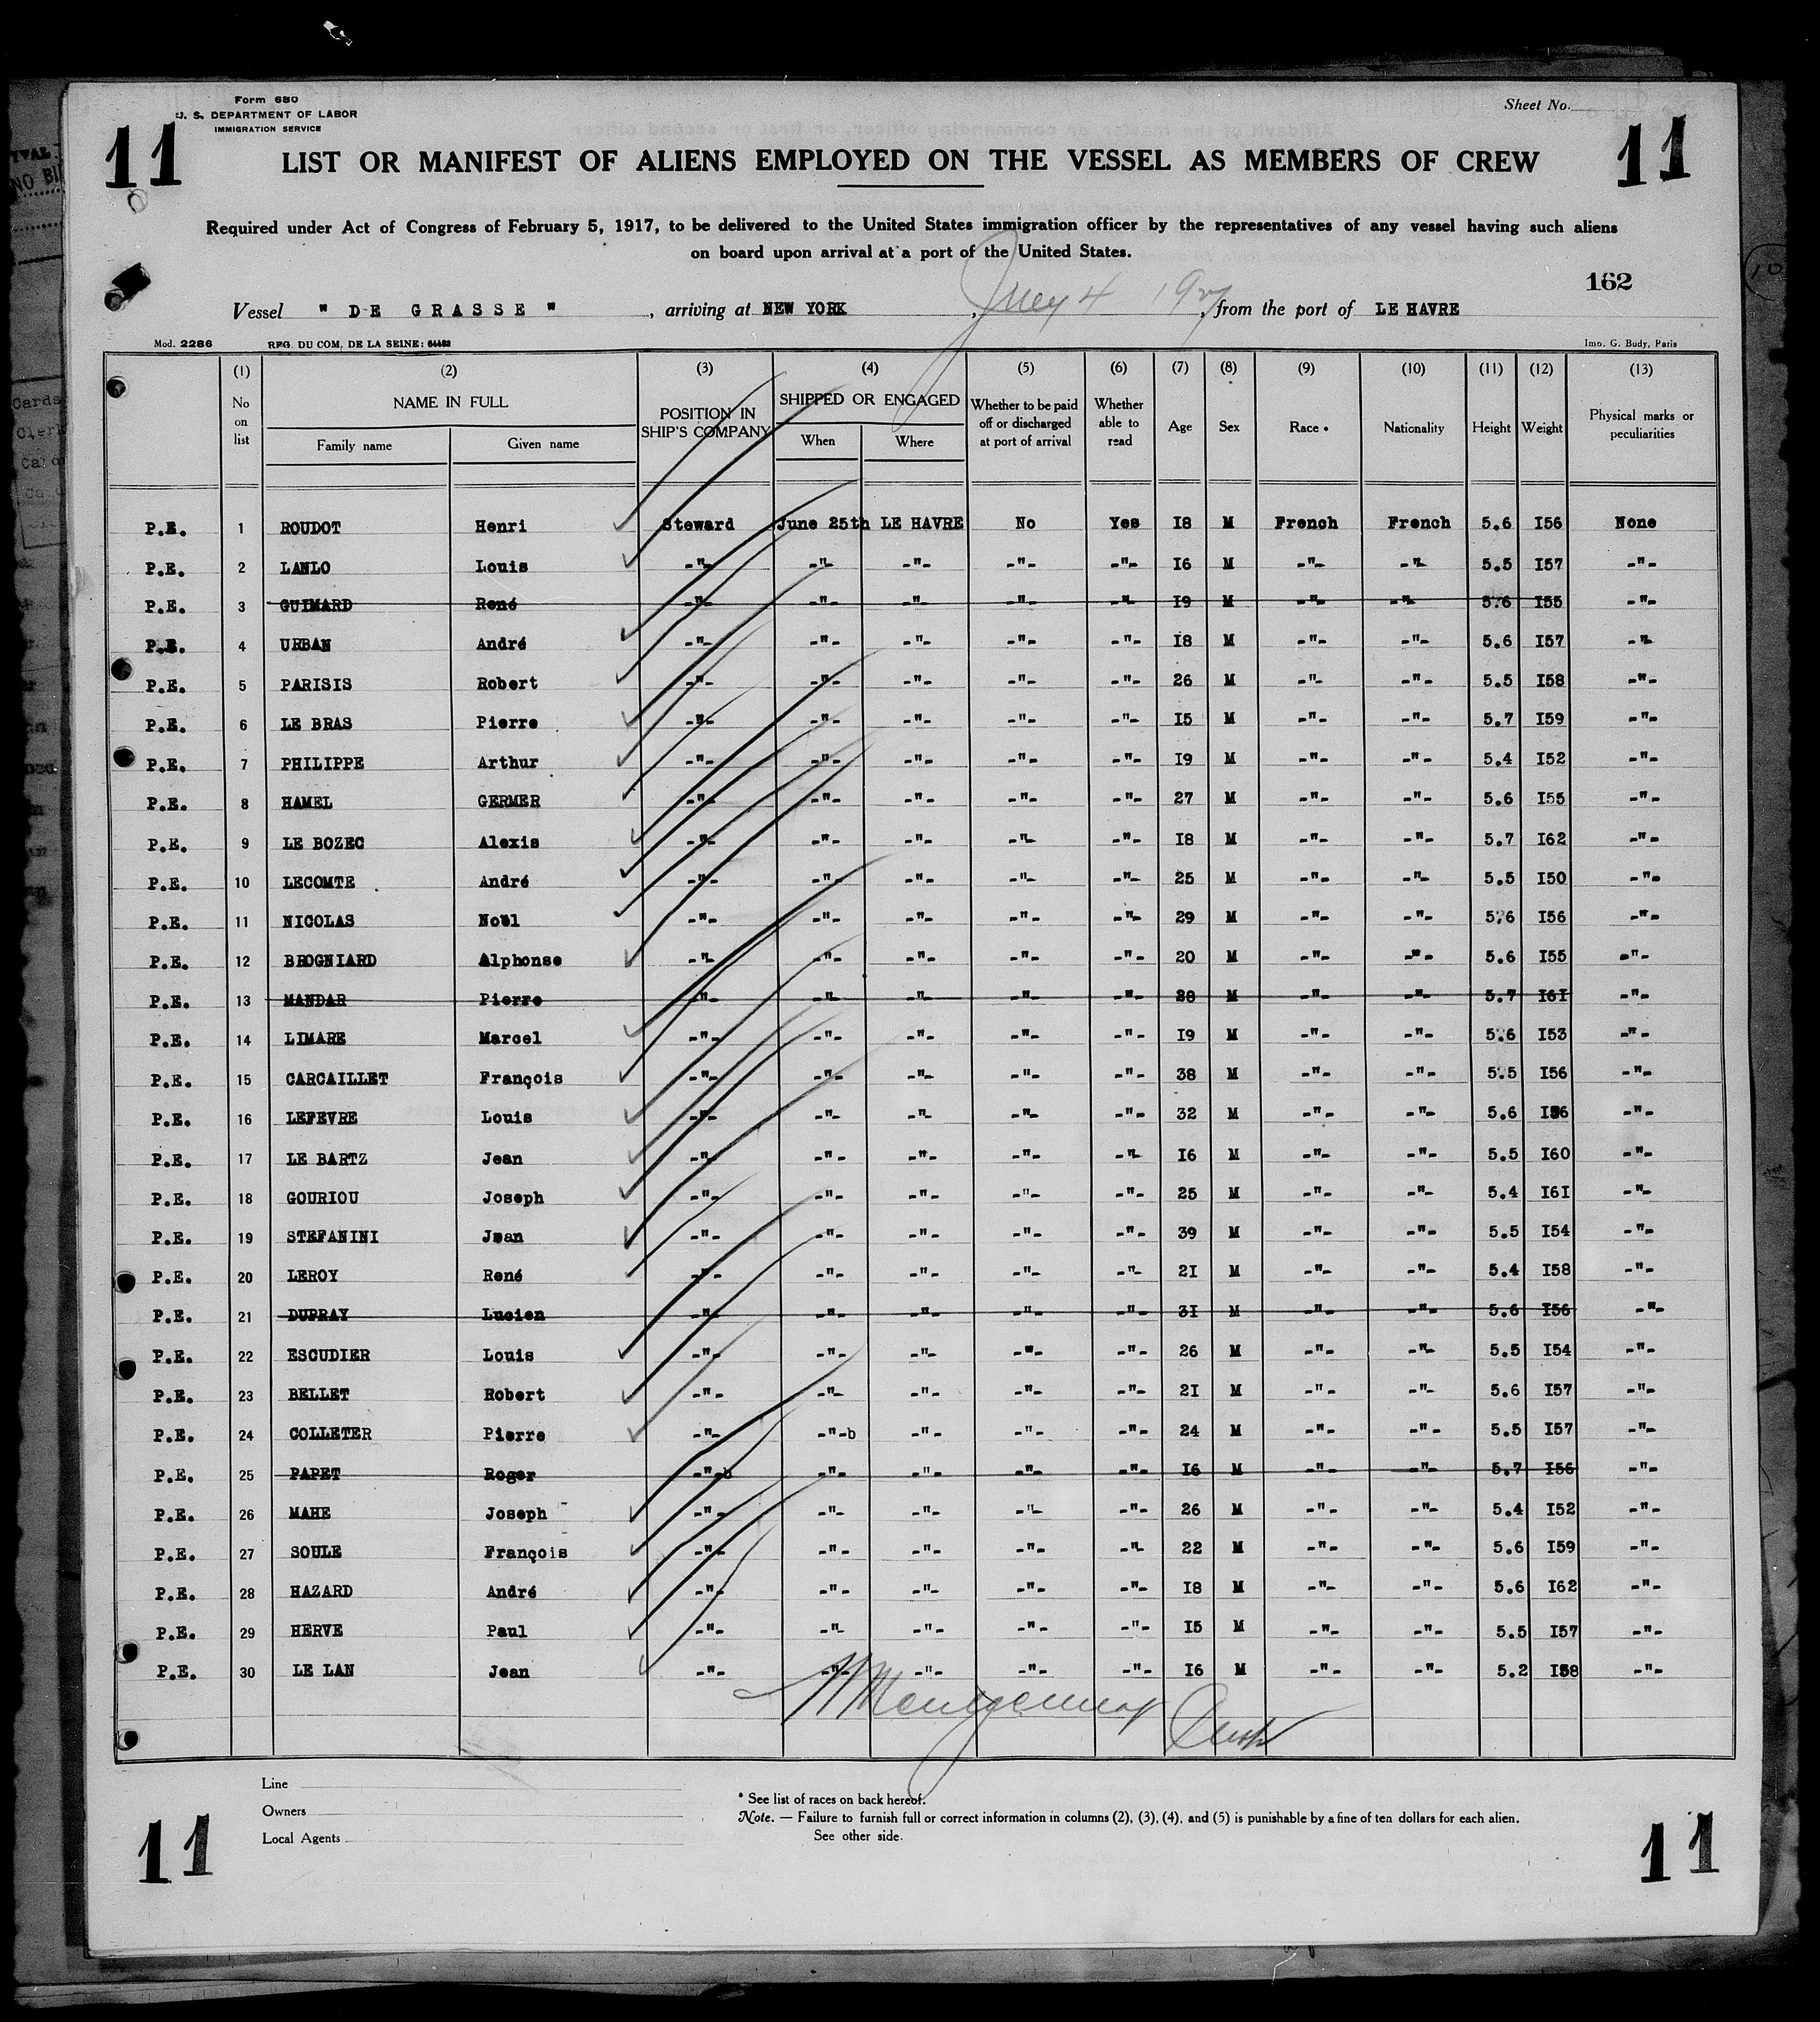 Form 680
U. S. DEPARTMENT OF LABOR
IMMIGRATION SERVICE
Sheet No.
11 11
LIST OR MANIFEST OF ALIENS EMPLOYED ON THE VESSEL AS MEMBERS OF CREW
Required under Act of Congress of February 5, 1917, to be delivered to the United States immigration officer by the representatives of any vessel having such aliens
on board upon arrival at a port of the United States.
162
Vessel " DE GRASSE ", arriving at NEW YORK, July 4 1927, from the port of LE HAVRE
Mod. 2286 REG. DU COM. DE LA SEINE: 64483 Imp. G. Budy, Paris
(1) (2) (3) (4) (5) (6) (7) (8) (9) (10) (11) (12) (13)
No on list NAME IN FULL Family name Given name POSITION IN SHIP'S COMPANY SHIPPED OR ENGAGED When Where Whether to be paid off or discharged at port of arrival Whether able to read Age Sex Race * Nationality Height Weight Physical marks or peculiarities
P.E. 1 ROUDOT Henri Steward June 25th LE HAVRE No Yes I8 M French French 5.6 I56 None
P.E. 2 LANLO Louis -"- -"- -"- -"- -"- I6 M -"- -"- 5.5 I57 -"-
P.E. 3 GUIMARD René -"- -"- -"- -"- -"- I9 M -"- -"- 5.6 I55 -"-
P.E. 4 URBAN André -"- -"- -"- -"- -"- I8 M -"- -"- 5.6 I57 -"-
P.E. 5 PARISIS Robert -"- -"- -"- -"- -"- 26 M -"- -"- 5.5 I58 -"-
P.E. 6 LE BRAS Pierre -"- -"- -"- -"- -"- I5 M -"- -"- 5.7 I59 -"-
P.E. 7 PHILIPPE Arthur -"- -"- -"- -"- -"- I9 M -"- -"- 5.4 I52 -"-
P.E. 8 HAMEL GERMER -"- -"- -"- -"- -"- 27 M -"- -"- 5.6 I55 -"-
P.E. 9 LE BOZEC Alexis -"- -"- -"- -"- -"- I8 M -"- -"- 5.7 I62 -"-
P.E. 10 LECOMTE André -"- -"- -"- -"- -"- 25 M -"- -"- 5.5 I50 -"-
P.E. 11 NICOLAS Noël -"- -"- -"- -"- -"- 29 M -"- -"- 5.6 I56 -"-
P.E. 12 BROGNIARD Alphonse -"- -"- -"- -"- -"- 20 M -"- -"- 5.6 I55 -"-
P.E. 13 MANDAR Pierre -"- -"- -"- -"- -"- 28 M -"- -"- 5.7 I6I -"-
P.E. 14 LIMARE Marcel -"- -"- -"- -"- -"- I9 M -"- -"- 5.6 I53 -"-
P.E. 15 CARCAILLET François -"- -"- -"- -"- -"- 38 M -"- -"- 5.5 I56 -"-
P.E. 16 LEFEVRE Louis -"- -"- -"- -"- -"- 32 M -"- -"- 5.6 -"-
P.E. 17 LE BARTZ Jean -"- -"- -"- -"- -"- I6 M -"- -"- 5.5 I60 -"-
P.E. 18 GOURIOU Joseph -"- -"- -"- -"- -"- 25 M -"- -"- 5.4 I6I -"-
P.E. 19 STEFANINI Jean -"- -"- -"- -"- -"- 39 M -"- -"- 5.5 I54 -"-
P.E. 20 LEROY René -"- -"- -"- -"- -"- 2I M -"- -"- 5.4 I58 -"-
P.E. 21 DUPRAY Lucien -"- -"- -"- -"- -"- 3I M -"- -"- 5.6 I56 -"-
P.E. 22 ESCUDIER Louis -"- -"- -"- -"- -"- 26 M -"- -"- 5.5 I54 -"-
P.E. 23 BELLET Robert -"- -"- -"- -"- -"- 2I M -"- -"- 5.6 I57 -"-
P.E. 24 COLLETER Pierre -"- -"-b -"- -"- -"- 24 M -"- -"- 5.5 I57 -"-
P.E. 25 PAPET Roger -"-b -"- -"- -"- -"- I6 M -"- -"- 5.7 I56 -"-
P.E. 26 MAHE Joseph -"- -"- -"- -"- -"- 26 M -"- -"- 5.4 I52 -"-
P.E. 27 SOULE François -"- -"- -"- -"- -"- 22 M -"- -"- 5.6 I59 -"-
P.E. 28 HAZARD André -"- -"- -"- -"- -"- I8 M -"- -"- 5.6 I62 -"-
P.E. 29 HERVE Paul -"- -"- -"- -"- -"- I5 M -"- -"- 5.5 I57 -"-
P.E. 30 LE LAN Jean -"- -"- -"- -"- -"- I6 M -"- -"- 5.2 I58 -"-
Line
Owners
Local Agents
* See list of races on back hereof.
Note. — Failure to furnish full or correct information in columns (2), (3), (4), and (5) is punishable by a fine of ten dollars for each alien.
See other side.
11 11